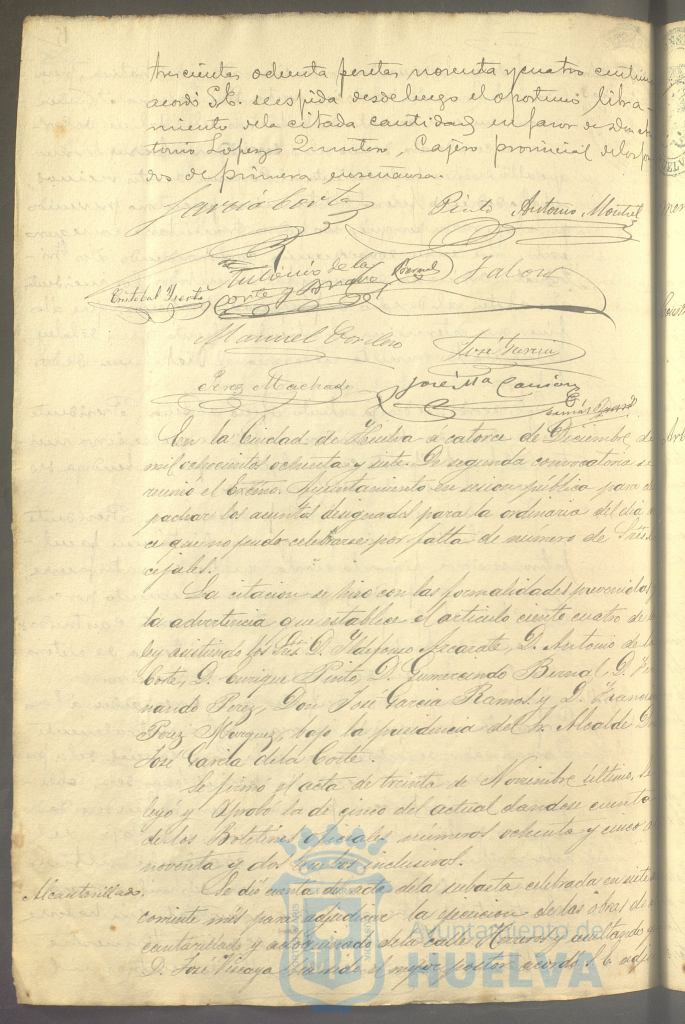 trescientas ochenta pesetas noventa y cuatro centim
acordó S.E. se espida desde luego el oportuno libra-
miento de la citada cantidad en favor de Don An
tonio Lopez Quintero, Cajero provincial de los fon
dos de primera enseñanza.
Garcia Corte
Pinto Antonio Montiel
Cristobal
Antonio de la
Corte y Bravo
Bernal
Manuel
José Garcia
Perez Machado
José Mª
En la Ciudad de Huelva á catorce de Diciembre de
mil ochocientos ochenta y siete. De segunda convocatoria se
reunió el Excmo. Ayuntamiento en sesion pública para
pachar los asuntos designados para la ordinaria del dia
ce que no pudo celebrarse por falta de número de Sres.
cejales.
La citacion se hizo con las formalidades prevenidas
la advertencia que establece el articulo ciento cuatro de
ley asistiendo los Sres. D. Ildefonso Azcarate, D. Antonio de la
Corte, D. Enrique Pinto, D. Gumersindo Bernal, D. Fer
nando Perez, Don José Garcia Ramos y D. Francis
Perez Marquez, bajo la presidencia del Sr. Alcalde D.
José Garcia de la Corte.
Se firmó el acta de treinta de Noviembre último, se
leyó y aprobó la de cinco del actual dandose cuenta
de los Boletines oficiales números ochenta y cinco
noventa y dos inclusives.
Alcantarillado.
Se dió cuenta del acta de la subasta celebrada en siete
corriente mes para adjudicar la ejecucion de las obras de
cantarillado y adoquinado de la calle y resultando
D. José Vizcaya ha sido el mejor postor acordó S.E. adju
Ayuntamiento de
HUELVA